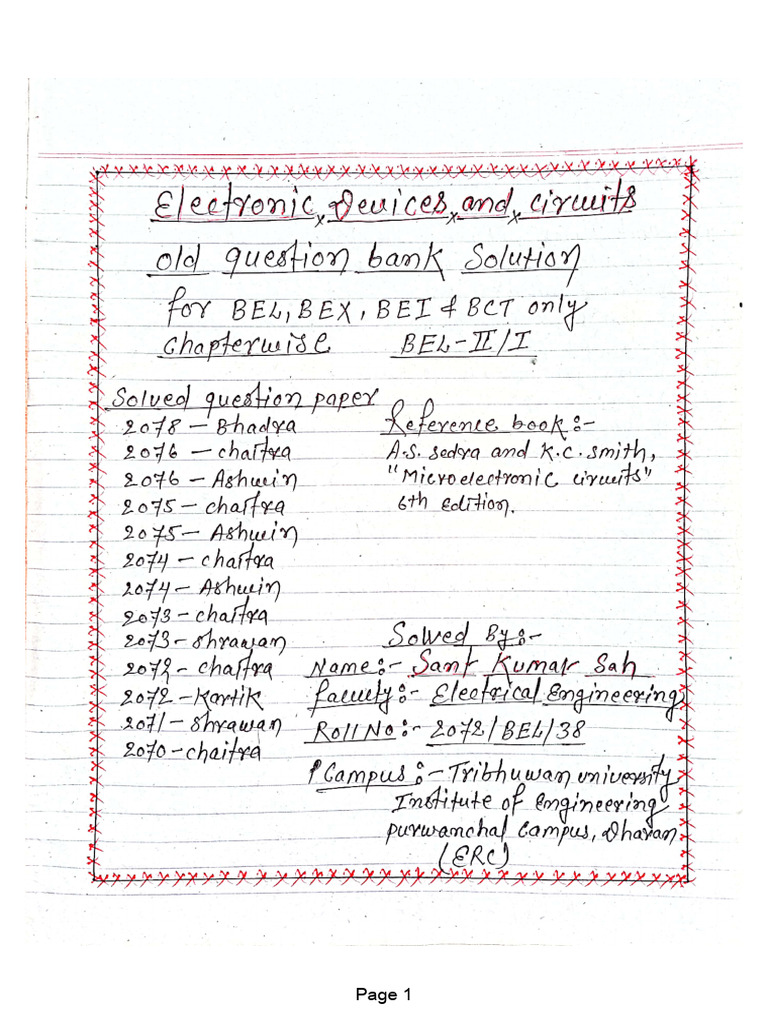 Electronic Devices and circuits
old question bank Solution
for BEL, BEX, BEI & BCT only
Chapterwise BEL-II/I
Solved question paper
2078 - Bhadra
2076 - chaitra
2076 - Ashwin
2075 - chaitra
2075 - Ashwin
2074 - chaitra
2074 - Ashwin
2073 - chaitra
2073 - shrawan
2072 - chaitra
2072 - Kartik
2071 - shrawan
2070 - chaitra
Reference book:-
A.S. sedra and K.C. smith,
"Microelectronic circuits"
6th edition.
Solved By:-
Name:- Sant Kumar Sah
faculty:- Electrical Engineering
Roll No:- 2072/BEL/38
Campus:- Tribhuwan university
Institute of Engineering
purwanchal campus, Dharan
(ERC)
Page 1